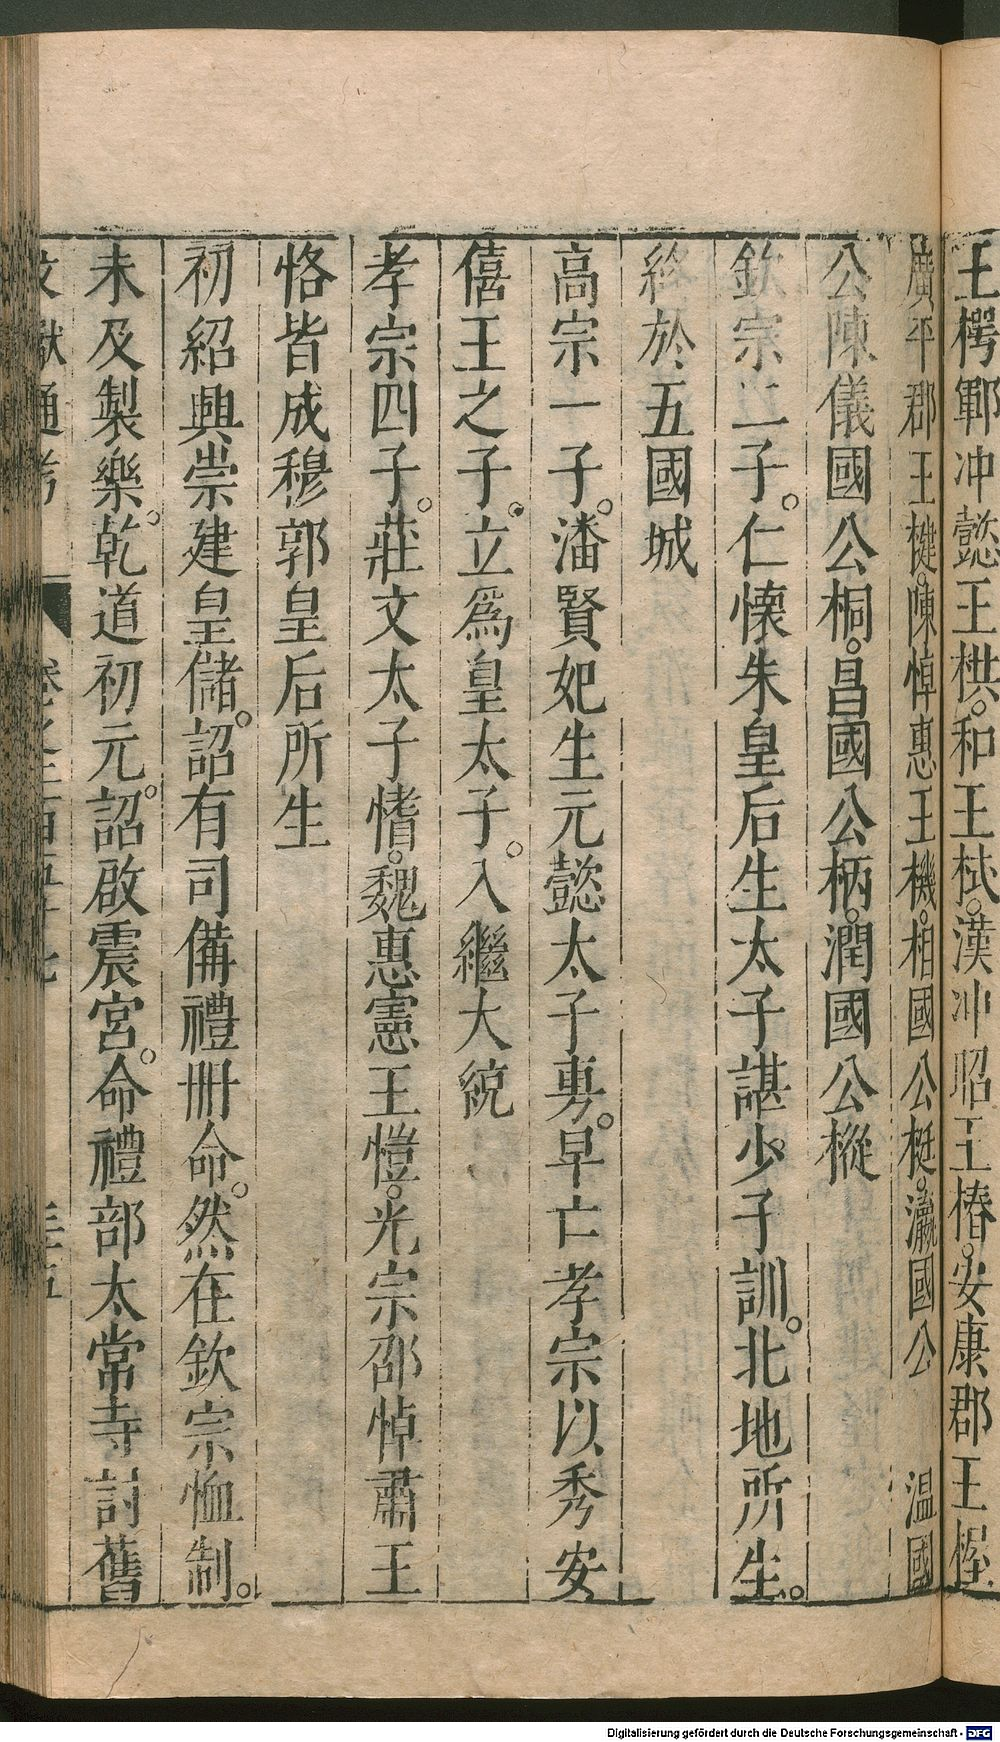 王楞鄆冲懿王栱。和王栻。漢冲昭王椿。安康郡王楃
廣平郡王楗。陳悼惠王機。相國公梃。瀛國公 温國
公陳儀國公桐。昌國公柄。潤國公樅
欽宗二子。仁懐朱皇后生太子諶少子訓。北地所生。
終於五國城
高宗一子。潘賢妃生元懿太子旉。早亡孝宗以秀安
僖王之子。立爲皇太子。入繼大統
孝宗四子。莊文太子愭。魏惠憲王愷。光宗邵悼肅王
恪皆成穆郭皇后所生
初紹興崇建皇儲。詔有司備禮冊命。然在欽宗恤制。
未及製樂。乾道初元。詔啟震宮。命禮部太常寺討舊
文獻通考 卷之二百五十七 三五
Digitalisierung gefördert durch die Deutsche Forschungsgemeinschaft - DFG